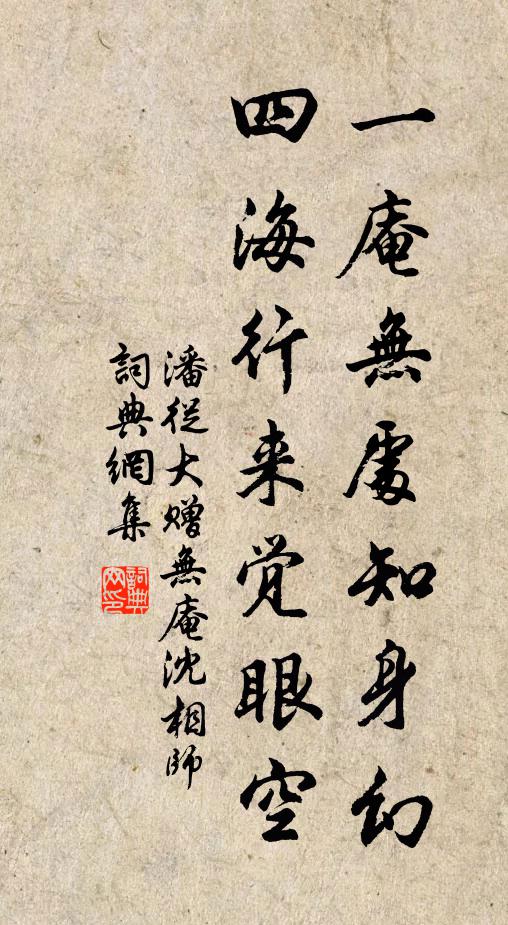 一庵無處知身幻
四海行来覺眼空
潘從大贈無庵沈相師
詞典網集
詞典網印